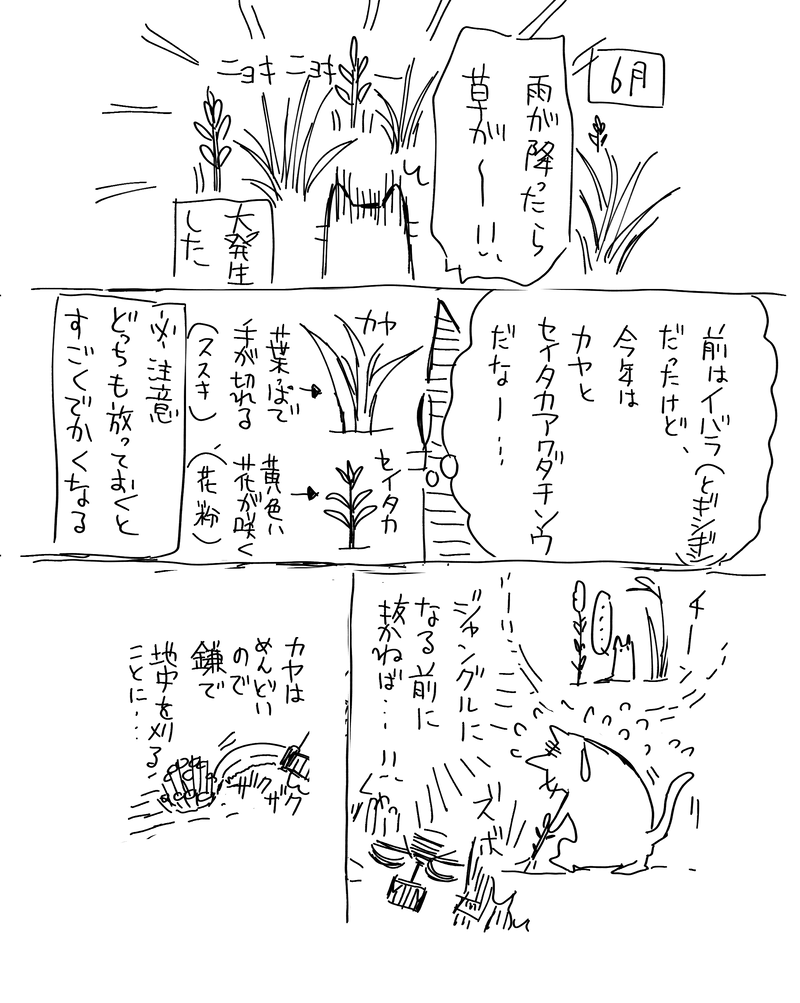 6月
雨が降ったら
草が〜!!
ニョキ ニョキ
大発生
した
前はイバラ(とギシギシ)
だったけど、
今年は
カヤと
セイタカアワダチソウ
だなー…
カヤ
葉っぱで
手が切れる
(ススキ)
セイタカ
黄色い
花が咲く
(花粉)
※注意
どっちも放っておくと
すごくでかくなる
チーン
ジャングルに
なる前に
抜かねば…!!
ズボ
カヤは
めんどい
ので
鎌で
地中を刈る
ことに…
ザクザク